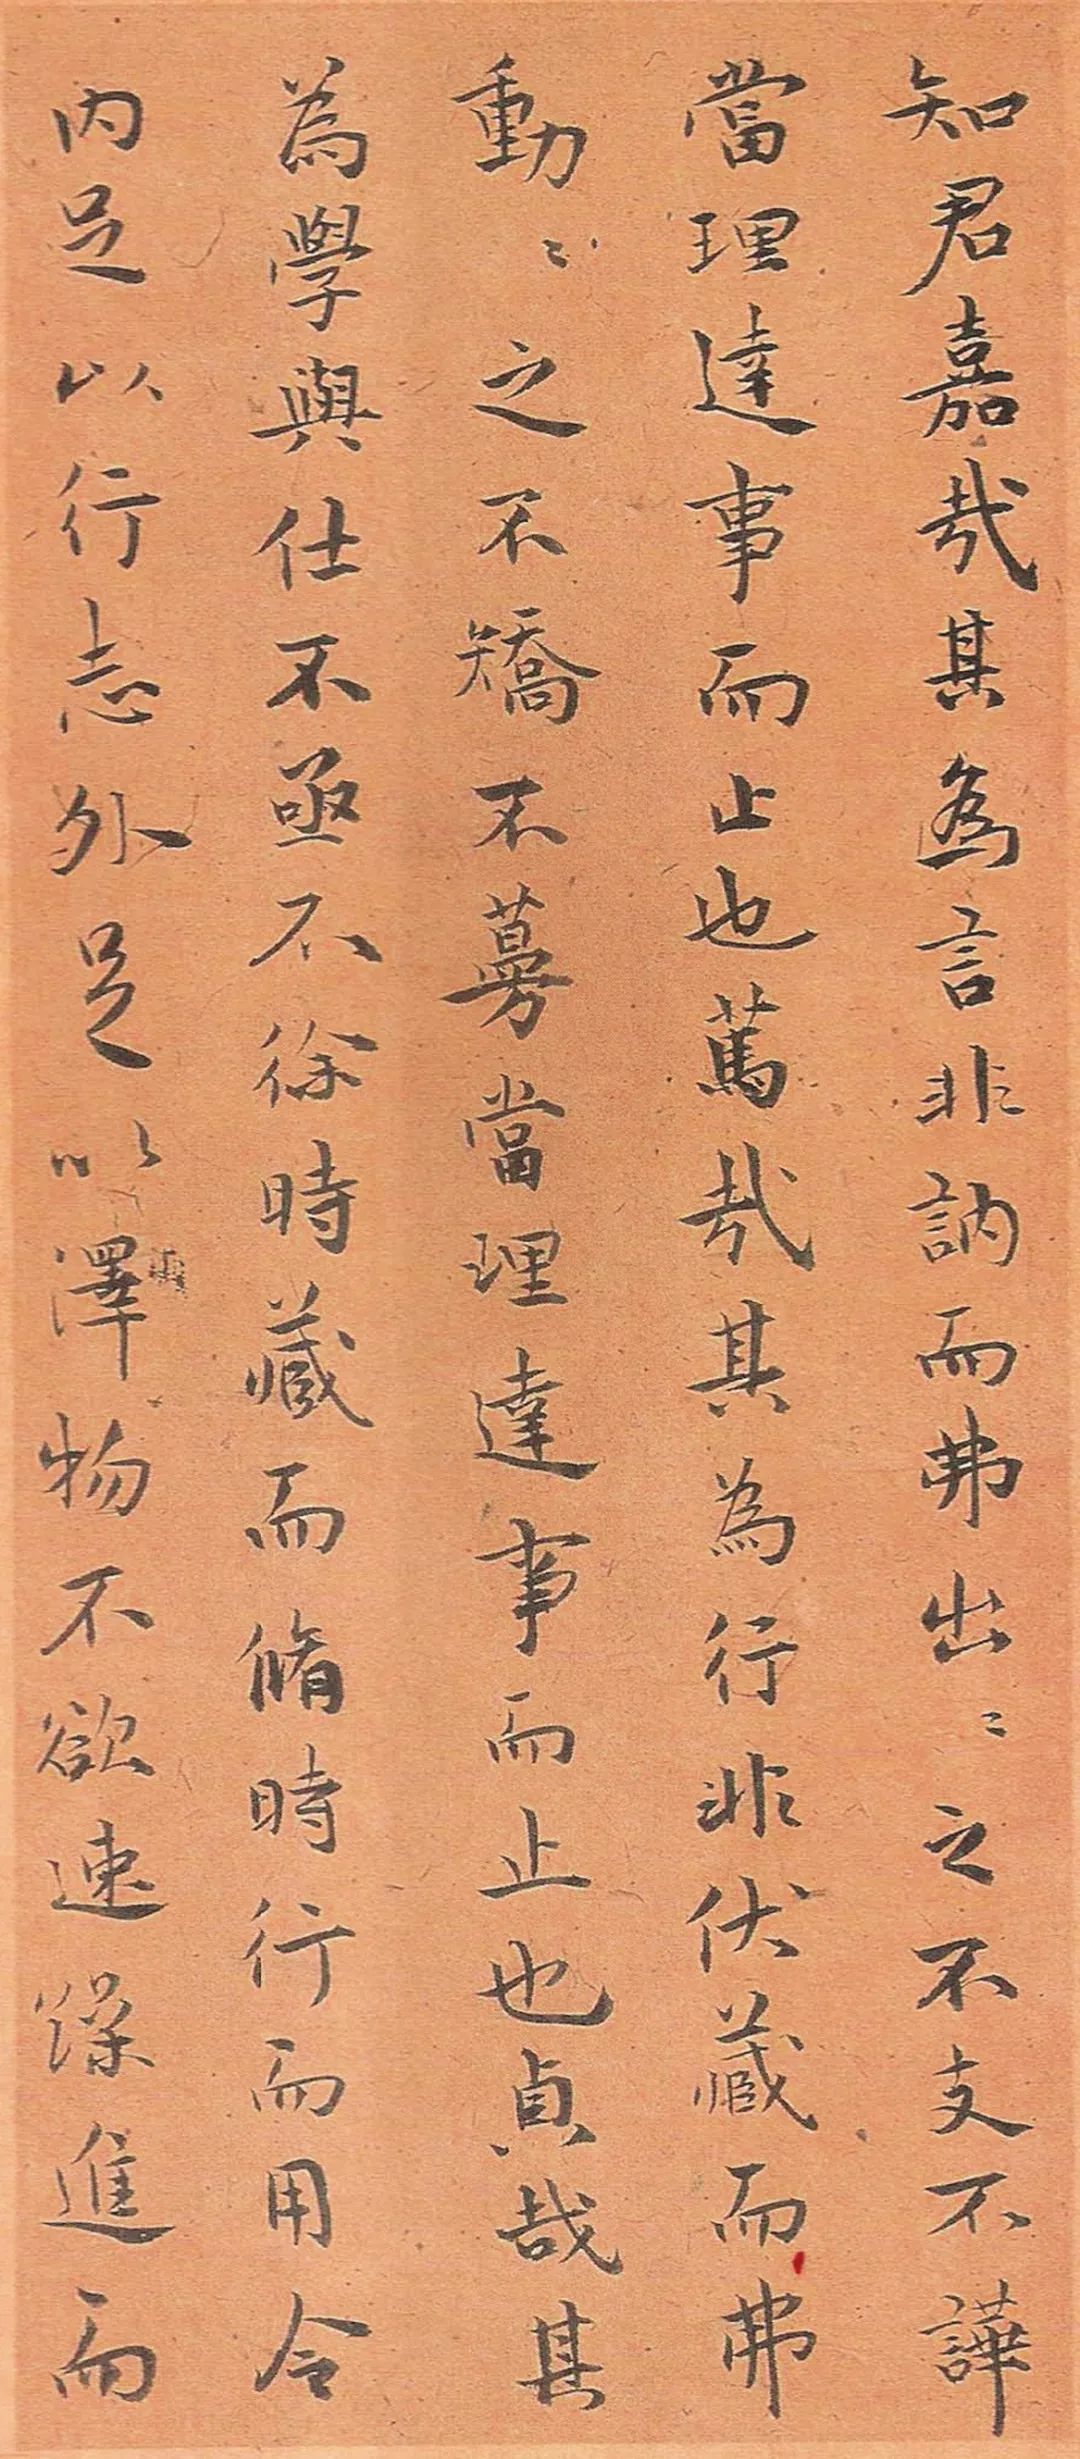 知君嘉哉其為言非訥而弗出〻之不支不譁
當理達事而止也篤哉其為行非伏藏而弗
動〻之不矯不募當理達事而止也貞哉其
為學與仕不亟不徐時藏而脩時行而用令
内足以行志外足以澤物不欲速躁進而